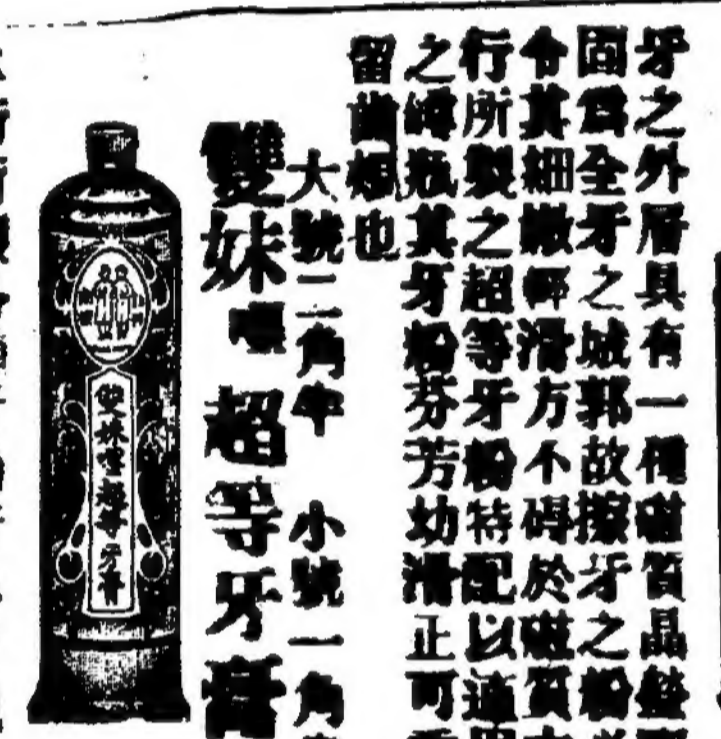 牙之外層具有一種磁質晶瑩
固爲全牙之城郭故擦牙之粉
令其細滑方不碍於磁質
行所製之超等牙粉特配以適
之罇瓶其牙粉芬芳幼滑正可
留齒頰也
大號二角半 小號一角
雙妹嘜超等牙膏
雙妹嘜超等牙膏